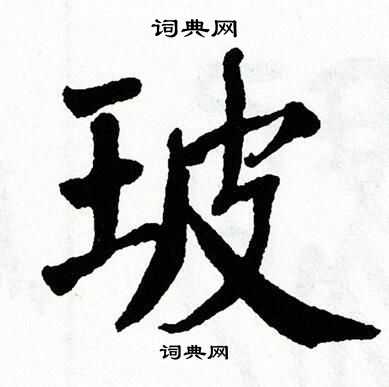 词典网
玻
词典网